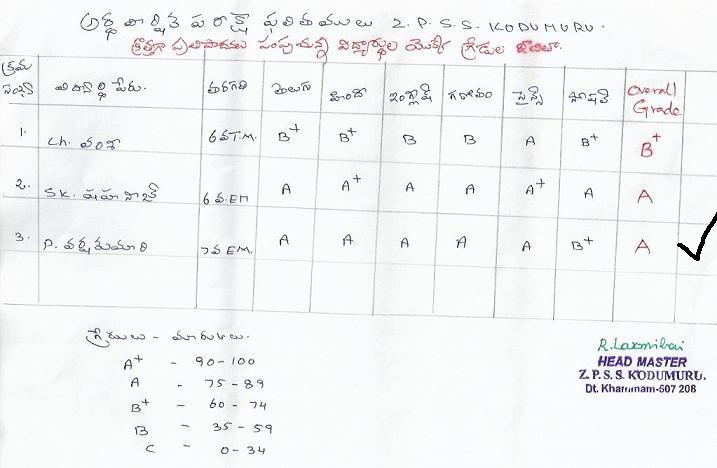 అర్థ వార్షిక పరీక్ష ఫలితములు Z.P.S.S. KODUMURU.
క్రొత్తగా ప్రతిపాదనలు పంపుచున్న విద్యార్థుల యొక్క గ్రేడుల జాబితా.
క్రమ సంఖ్య విద్యార్థి పేరు. తరగతి తెలుగు హిందీ ఇంగ్లీష్ గణితం సైన్స్ సోషల్ Overall Grade
1. Ch. వంశీ 6వ T.M. B+ B+ B B A B+ B+
2. SK. షహనాజ్ 6వ.EM A A+ A A A+ A A
3. P. వర్ష కుమారి 7వ EM. A A A A A B+ A
గ్రేడులు - మార్కులు.
A+ - 90-100
A - 75-89
B+ - 60-74
B - 35-59
C - 0-34
R. Laxmibai
HEAD MASTER
Z. P. S. S. KODUMURU.
Dt. Khammam-507 208